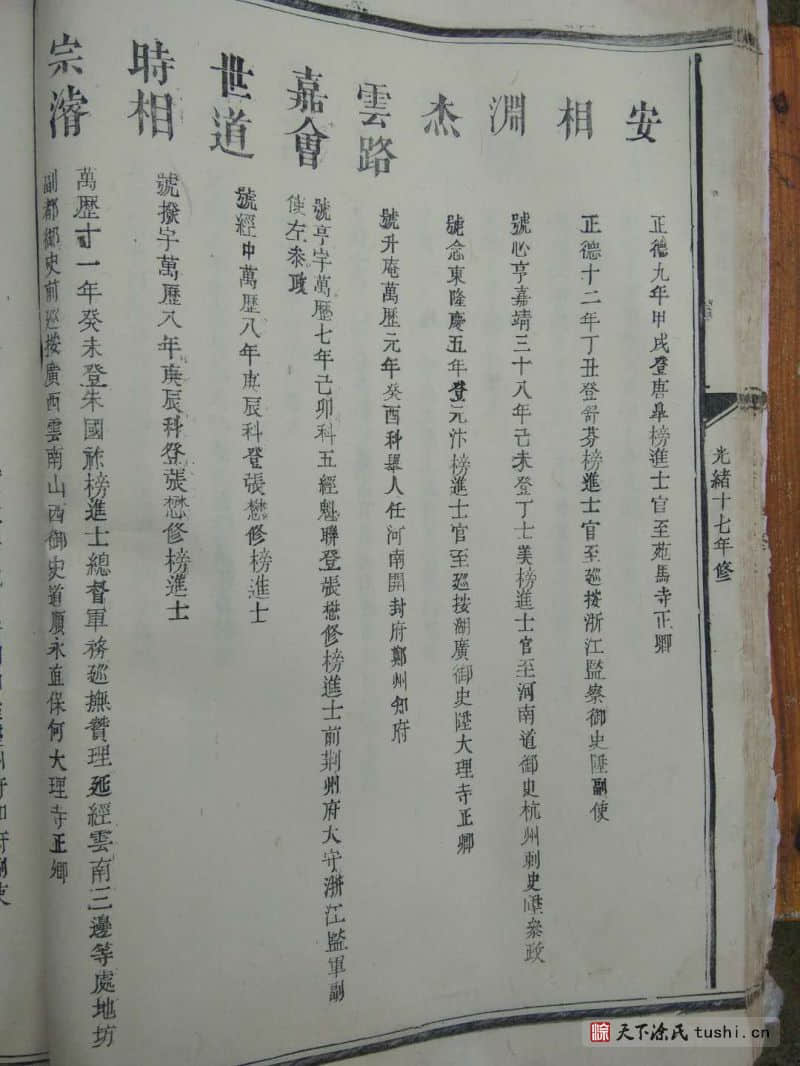 光緒十七年修
安
正德九年甲戌登唐皐榜進士官至苑馬寺正卿
相
正德十二年丁丑登舒芬榜進士官至廵按浙江監察御史陞副使
淵
號心亨嘉靖三十八年己未登丁士美榜進士官至河南道御史杭州刺史陞叅政
杰
號念東隆慶五年登元汴榜進士官至廵按湖廣御史陞大理寺正卿
雲路
號升庵萬歷元年癸酉科舉人任河南開封府鄭州知府
嘉會
號亨宇萬歷七年己卯科五經魁聯登張懋修榜進士前荆州府大守浙江監軍副
使左叅政
世道
號經中萬歷八年庚辰科登張懋修榜進士
時相
號撥宇萬歷八年庚辰科登張懋修榜進士
宗濬
萬歷十一年癸未登朱國祚榜進士總督軍務廵撫贊理延經雲南三邊等處地坊
副都御史前廵按廣西雲南山西御史道順永直保何大理寺正卿
天下涂氏 tushi.cn